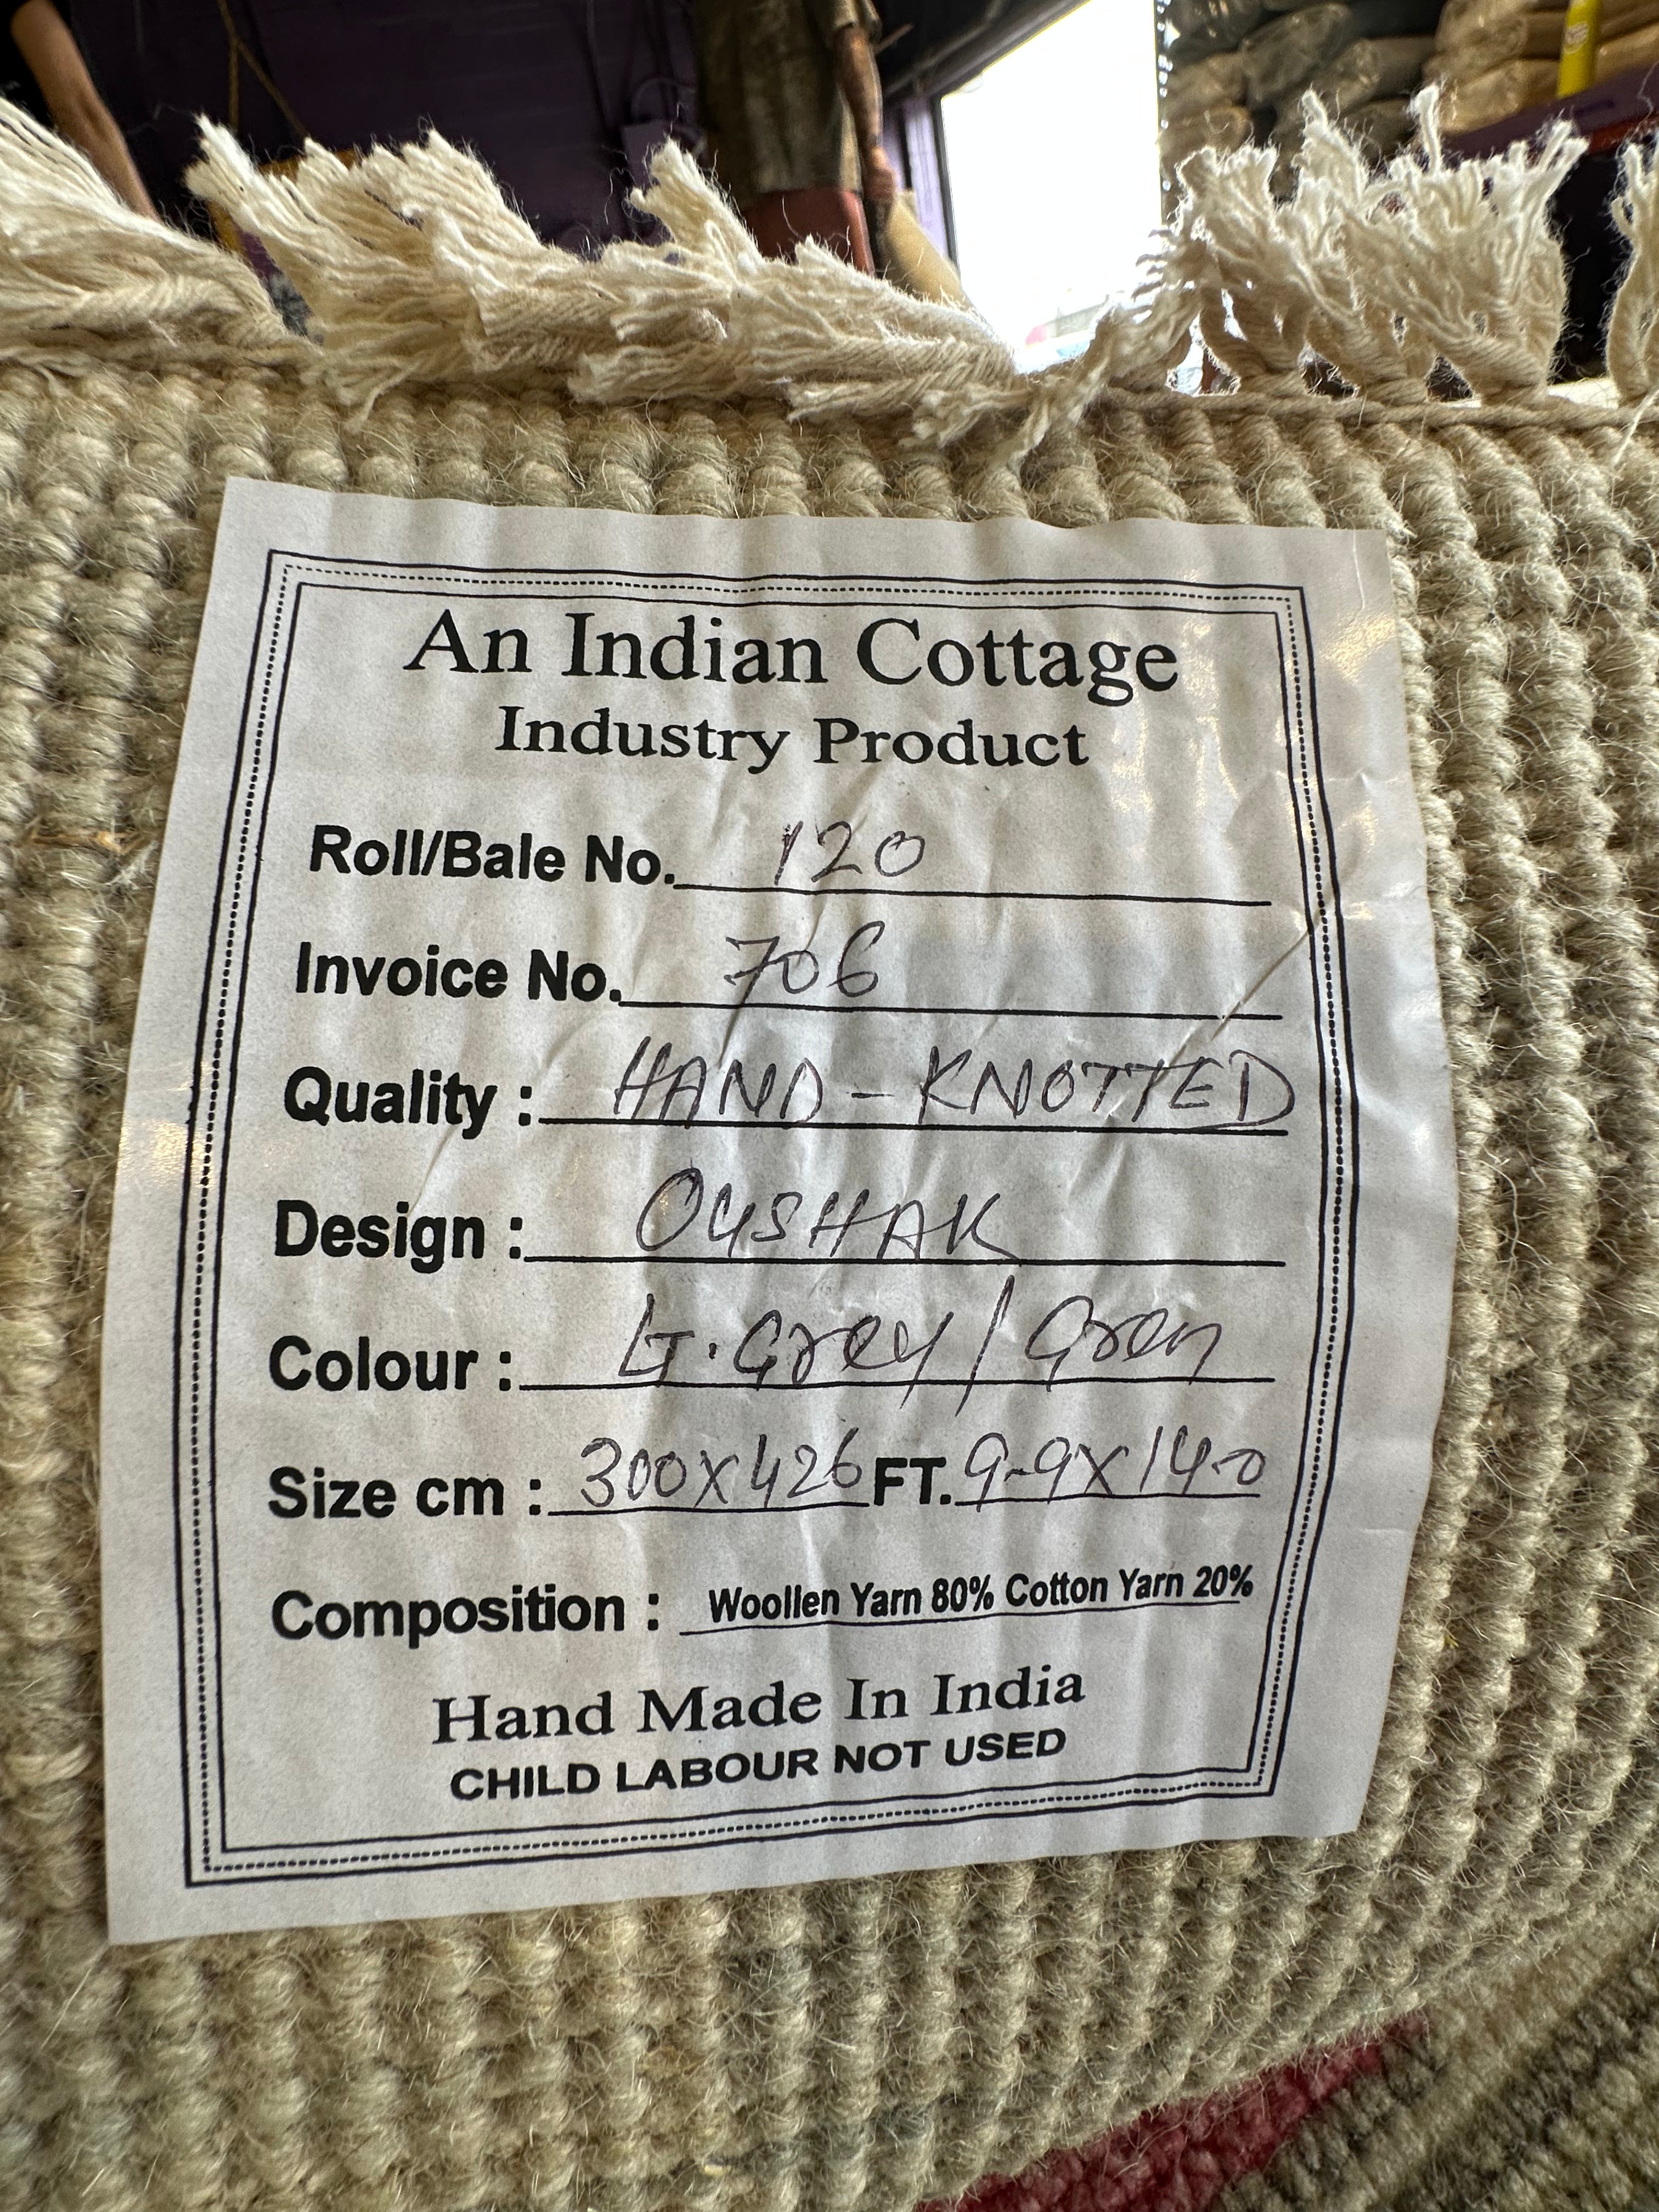 An Indian Cottage
Industry Product
Roll/Bale No. 120
Invoice No. 706
Quality : HAND - KNOTTED
Design : OUSHAK
Colour : LT. Grey / Green
Size cm : 300X426 FT. 9-9X14-0
Composition : Woollen Yarn 80% Cotton Yarn 20%
Hand Made In India
CHILD LABOUR NOT USED